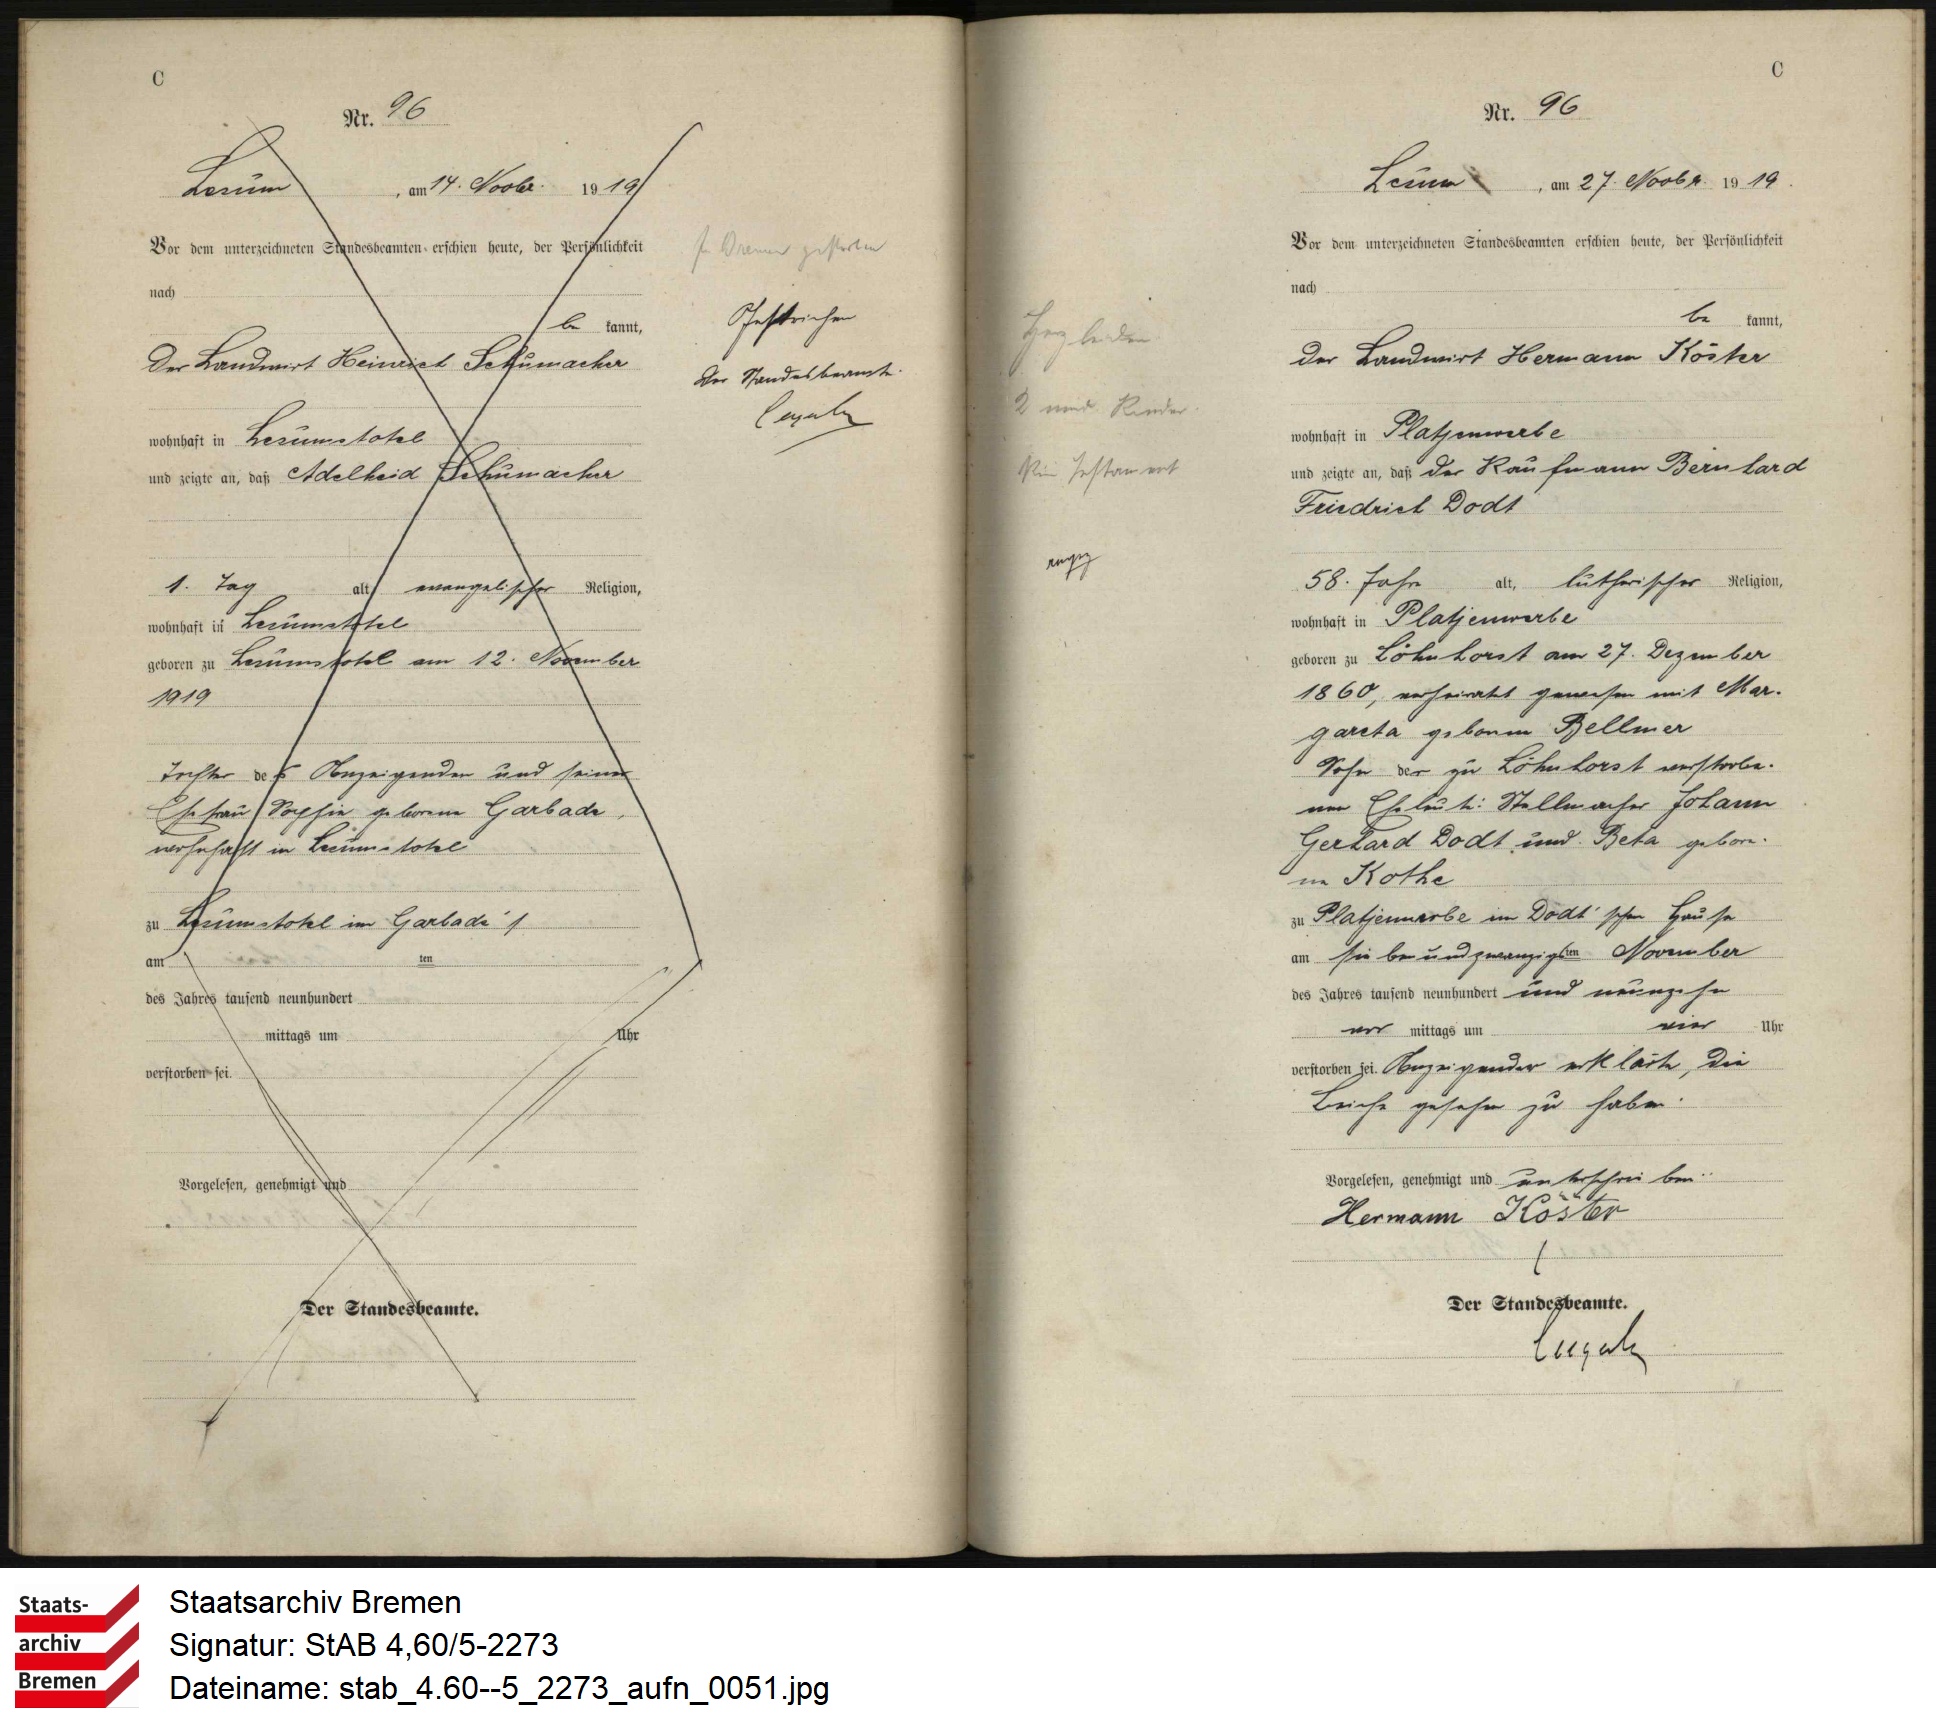 C
Nr. 96
Lesum, am 14. Novbr. 1919
Vor dem unterzeichneten Standesbeamten erschien heute, der Persönlichkeit
nach
be kannt,
der Landwirt Heinrich Schumacher
wohnhaft in Lesumstotel
und zeigte an, daß Adelheid Schumacher
1. Tag alt, evangelischer Religion,
wohnhaft in Lesumstotel
geboren zu Lesumstotel am 12. November
1919
Tochter des Anzeigenden und seiner
Ehefrau Sophie geborene Garbade,
wohnhaft in Lesumstotel
zu Lesumstotel im Garbade's
am ten
des Jahres tausend neunhundert
mittags um Uhr
verstorben sei.
Vorgelesen, genehmigt und
Der Standesbeamte.
In Bremen gestorben
Gestrichen
Der Standesbeamte.
C
Nr. 96
Lesum, am 27. Novbr. 1919.
Vor dem unterzeichneten Standesbeamten erschien heute, der Persönlichkeit
nach
be kannt,
der Landwirt Hermann Köster
wohnhaft in Platjenwerbe
und zeigte an, daß der Kaufmann Bernhard
Friedrich Dodt
58. Jahre alt, lutherischer Religion,
wohnhaft in Platjenwerbe
geboren zu Löhnhorst am 27. Dezember
1860, verheiratet gewesen mit Mar-
gareta geborene Bellmer
Sohn der zu Löhnhorst verstorbe-
nen Eheleute: Stellmacher Johann
Gerhard Dodt und Beta gebore-
ne Kothe
zu Platjenwerbe im Dodt'schen Hause
am siebenundzwanzigsten November
des Jahres tausend neunhundert und neunzehn
vor mittags um vier Uhr
verstorben sei. Anzeigender erklärte, die
Leiche gesehen zu haben.
Vorgelesen, genehmigt und unterschrieben
Hermann Köster
Der Standesbeamte.
Herzleiden
2 mind. Kinder
Kein Testament
Staats-
archiv
Bremen
Staatsarchiv Bremen
Signatur: StAB 4,60/5-2273
Dateiname: stab_4.60--5_2273_aufn_0051.jpg